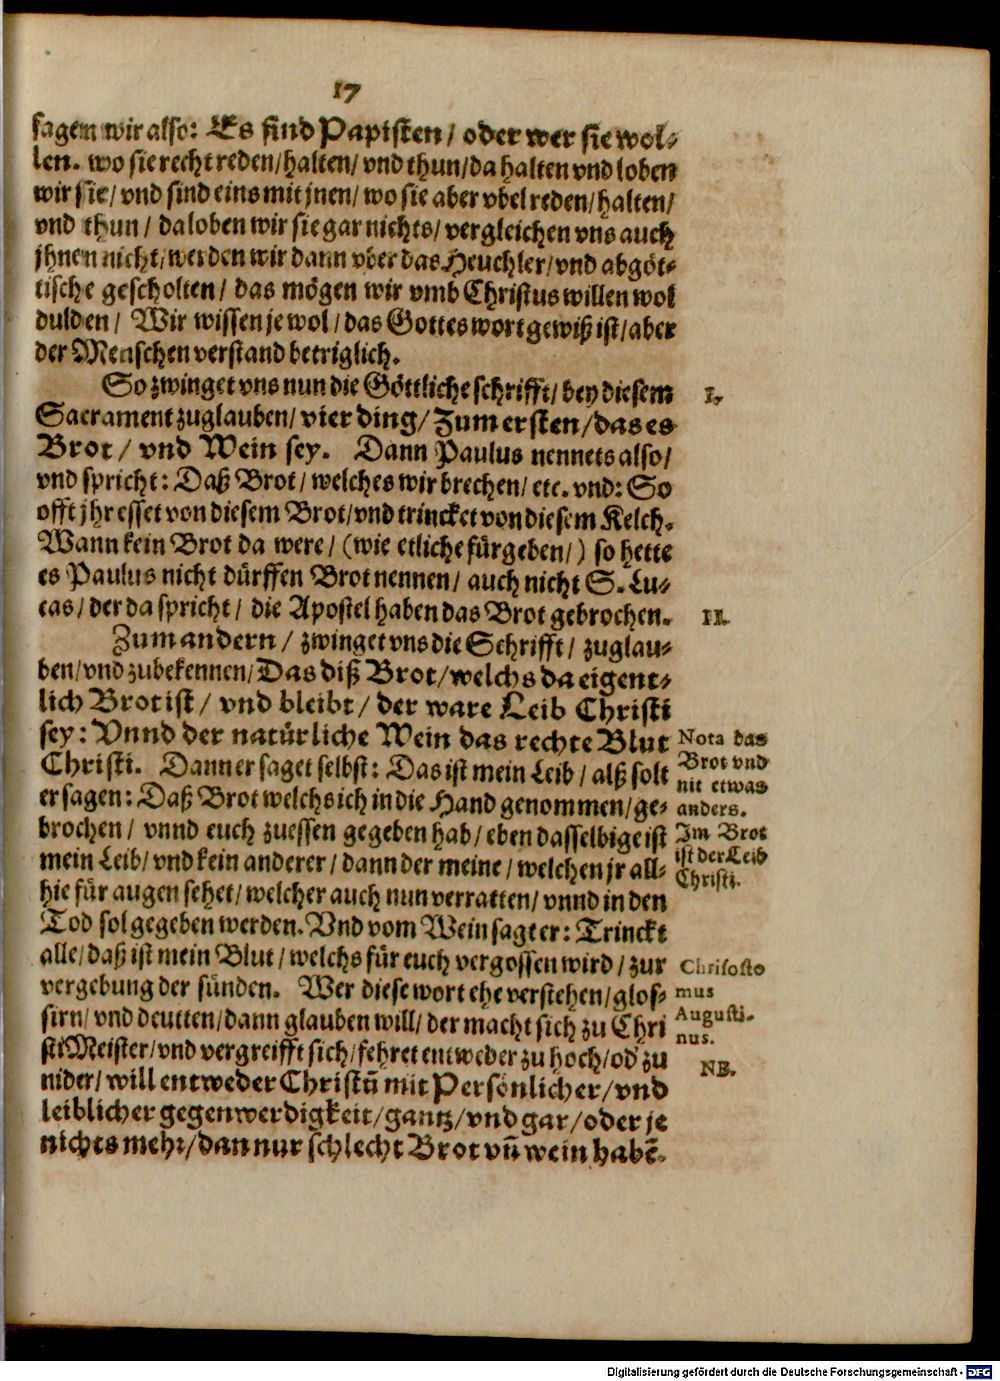 17
sagen wir also: Es sind Papisten/ oder wer sie wol-
len. wo sie recht reden/halten/ vnd thun/da halten vnd loben
wir sie/ vnd sind eins mit jnen/ wo sie aber vbel reden/halten/
vnd thun/ da loben wir sie gar nichts/ vergleichen vns auch
jhnen nicht/ werden wir dann vber das Heuchler/vnd abgöt-
tische gescholten/ das mögen wir vmb Christus willen wol
dulden/ Wir wissen je wol/ das Gottes wort gewiß ist/ aber
der Menschen verstand betriglich.
So zwinget vns nun die Göttliche schrifft/ bey diesem
I.
Sacrament zuglauben/ vier ding/ Zum ersten/das es
Brot/ vnd Wein sey. Dann Paulus nennets also/
vnd spricht: Daß Brot/ welches wir brechen/ etc. vnd: So
offt jhr esset von diesem Brot/vnd trincket von diesem Kelch.
Wann kein Brot da were/ (wie etliche fürgeben/) so hette
es Paulus nicht dürffen Brot nennen/ auch nicht S. Lu-
cas/ der da spricht/ die Apostel haben das Brot gebrochen.
II.
Zum andern/ zwinget vns die Schrifft/ zuglau-
ben/vnd zubekennen/ Das diß Brot/welchs da eigent-
lich Brot ist/ vnd bleibt/ der ware Leib Christi
sey: Vnnd der natürliche Wein das rechte Blut
Christi. Dann er saget selbst: Das ist mein Leib/ alß solt
er sagen: Daß Brot welchs ich in die Hand genommen/ge-
brochen/ vnnd euch zuessen gegeben hab/ eben dasselbige ist
mein Leib/ vnd kein anderer/ dann der meine/ welchen jr all-
hie für augen sehet/ welcher auch nun verratten/ vnnd in den
Tod sol gegeben werden. Vnd vom Wein sagt er: Trinckt
alle/ daß ist mein Blut/ welchs für euch vergossen wird/ zur
vergebung der sünden. Wer diese wort ehe verstehen/glos-
sirn/ vnd deutten/dann glauben will/ der macht sich zu Chri
sti Meister/vnd vergreifft sich/fehret entweder zu hoch/od' zu
nider/ will entweder Christū mit Persönlicher/vnd
leiblicher gegenwerdigkeit/gantz/vnd gar/oder je
nichts mehr/dan nur schlecht Brot vñ wein habē.
Nota das
Brot vnd
nit etwas
anders.
Im Brot
ist der Leib
Christi.
Chrisosto
mus
Augusti-
nus.
NB.
Digitalisierung gefördert durch die Deutsche Forschungsgemeinschaft - DFG